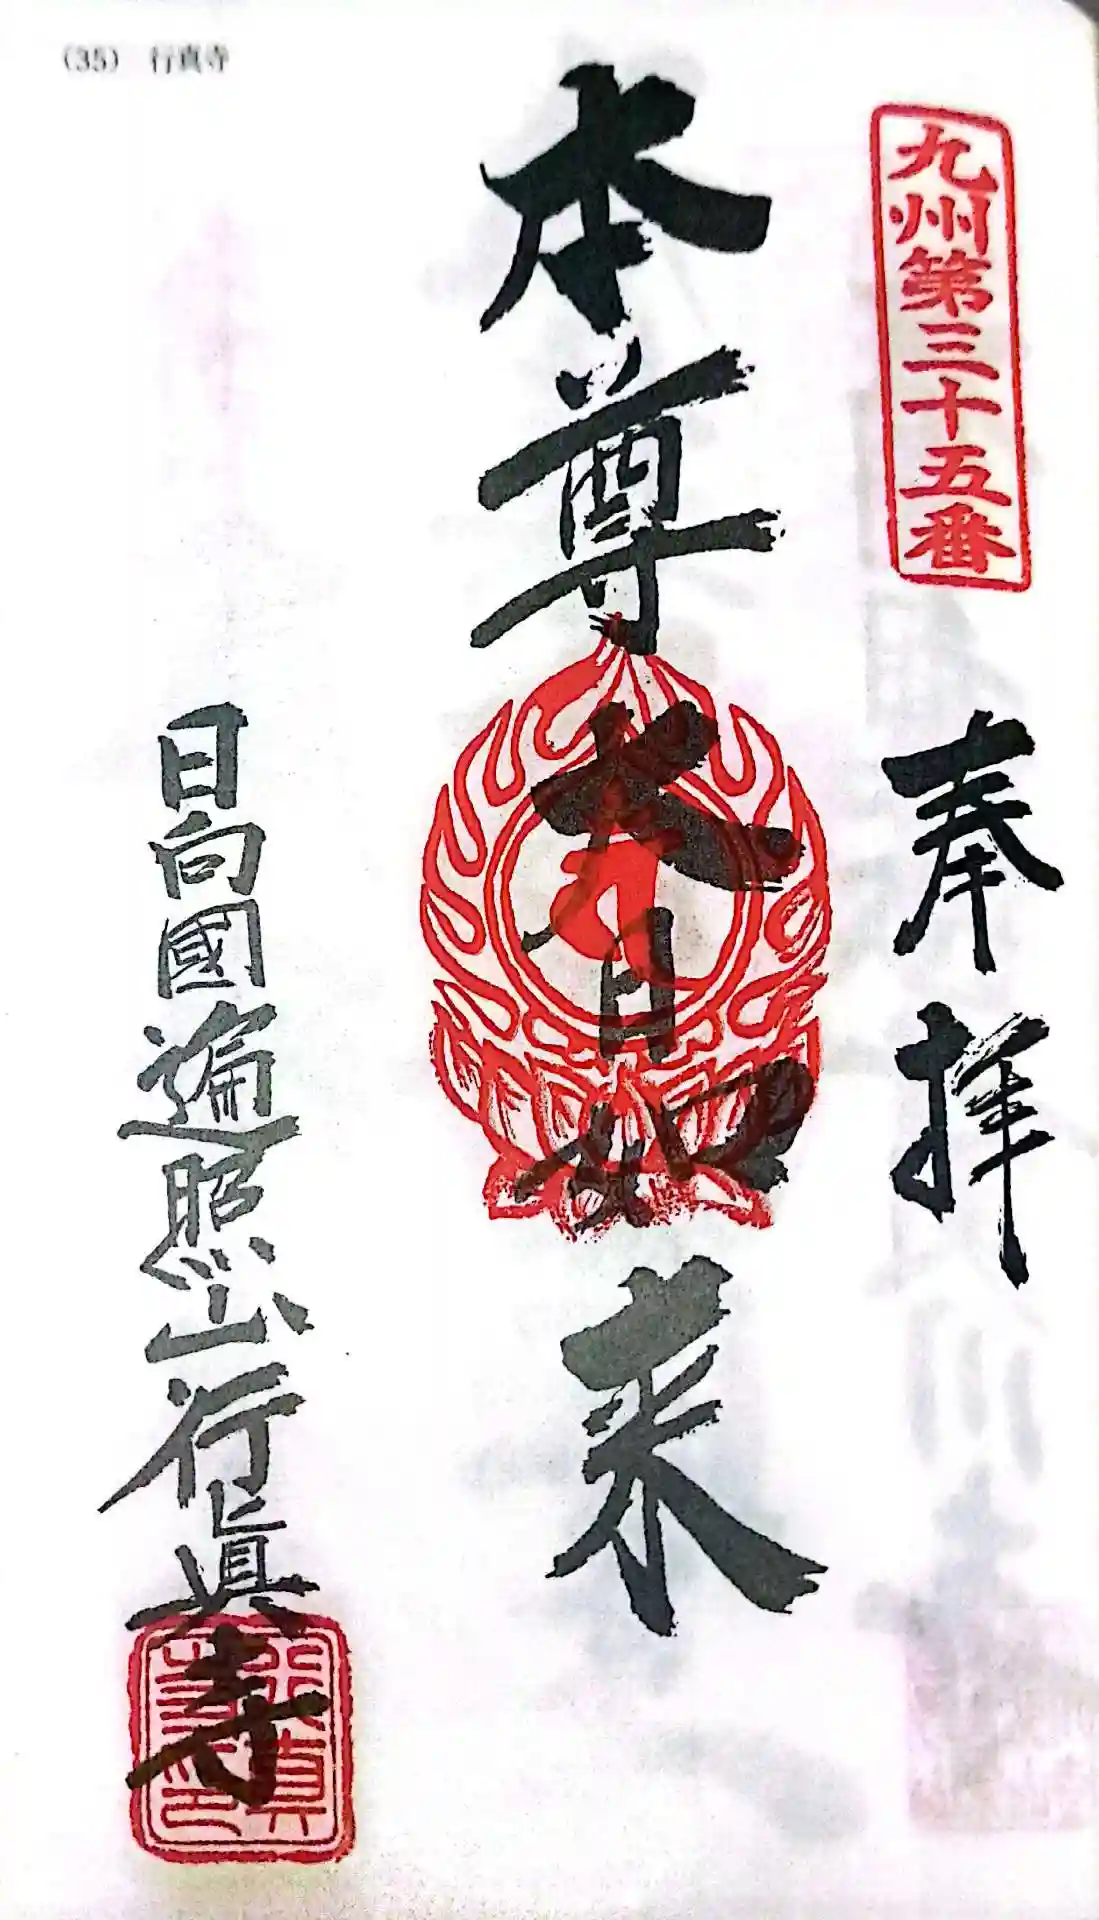 (35) 行真寺
九州第三十五番
奉拝
本尊大日如来
日向國遍照山行真寺